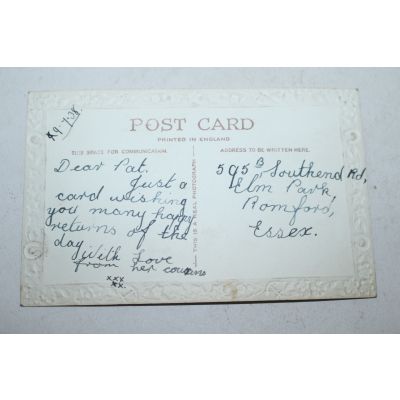 29-7-38
POST CARD
PRINTED IN ENGLAND
THIS SPACE FOR COMMUNICATION.
ADDRESS TO BE WRITTEN HERE.
THIS IS A REAL PHOTOGRAPH
Dear Pat.
Just a
card wishing
you many happy
returns of the
day
With Love
from her cousins
xxx
xx.
595B Southend Rd,
Elm Park
Romford,
Essex.